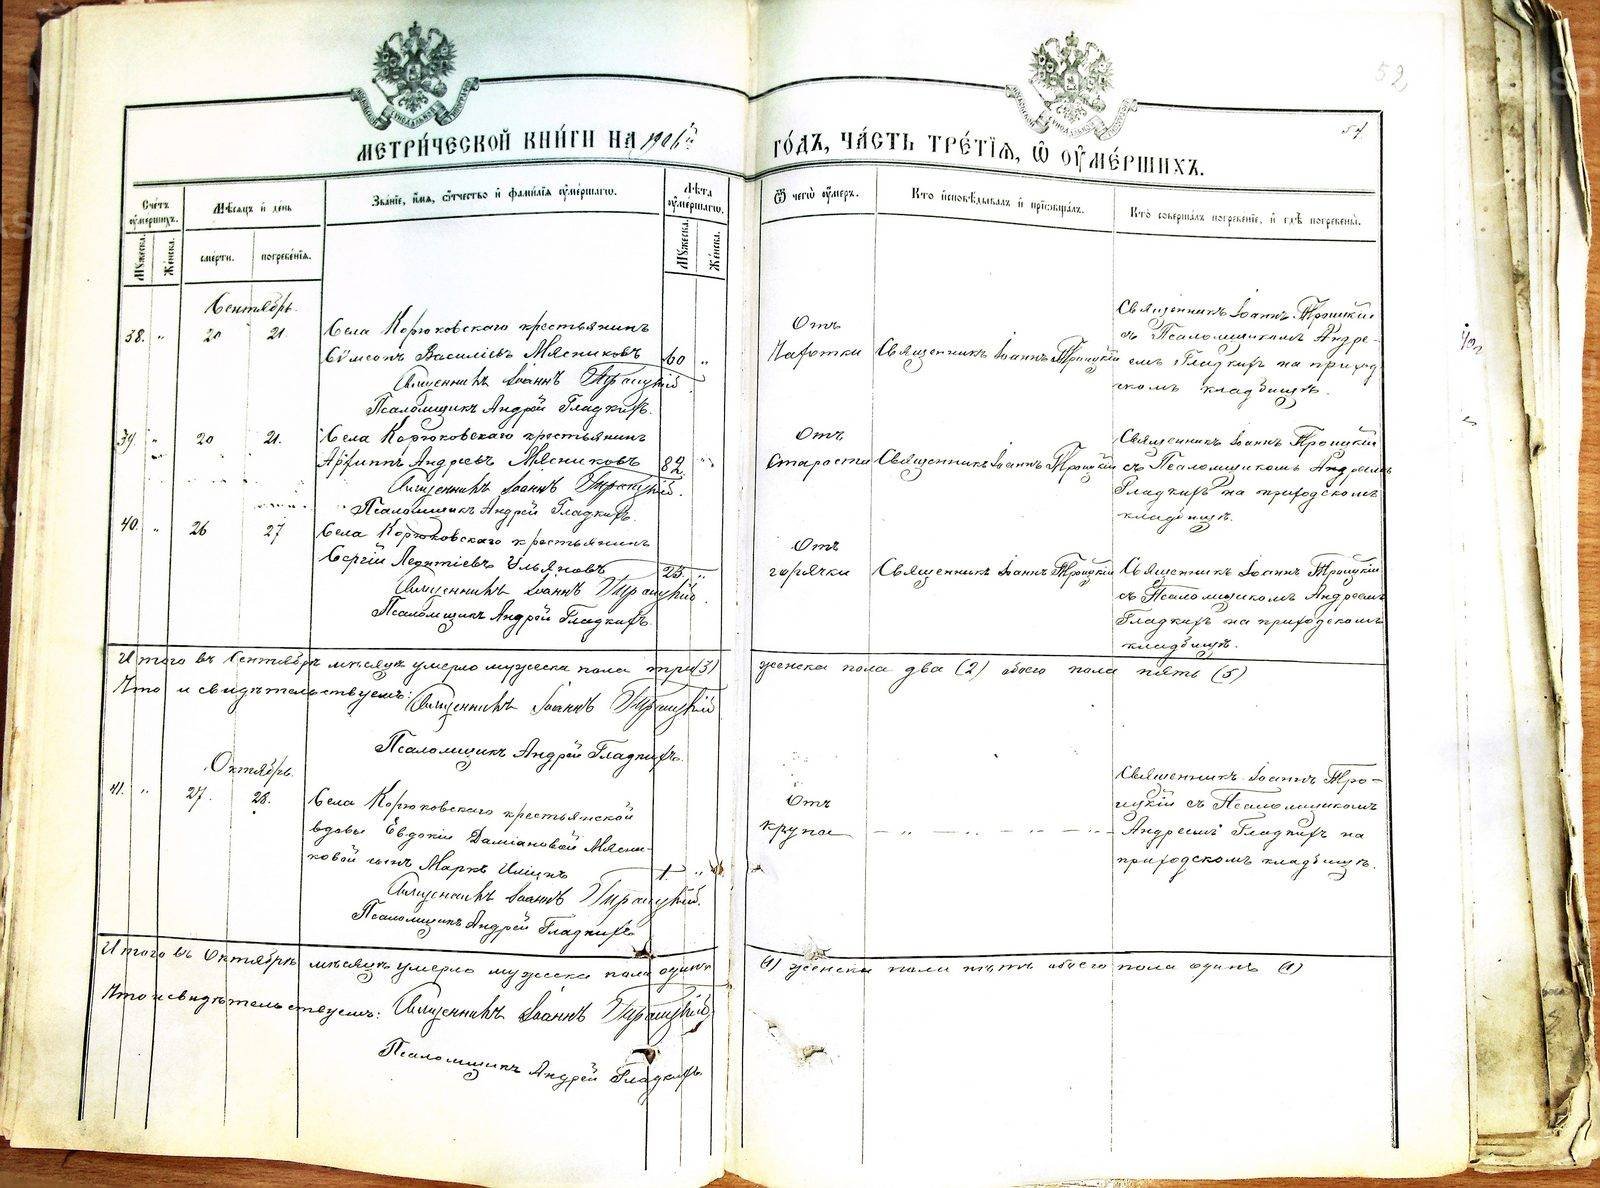 52
54
МЕТРИ́ЧЕСКОЙ КНИ́ГИ НА 1906й
ГО́ДЪ, ЧА́СТЬ ТРЕ́ТЇѦ, Ѡ ОУМЕ́РШИХЪ.
Сче́тъ оуме́ршихъ.
Мужеска.
Женска.
Мѣсяцъ и день
сме́рти.
погребе́нїѧ.
Зва́нїе, и́мѧ, ѻ҆́тчество и фами́лїѧ оуме́ршагѡ.
Лѣта оуме́ршагѡ.
Мужеска.
Женска.
Ѿ чегѡ̀ оу́меръ.
Кто исповѣ́дывалъ и прїѡбща́лъ.
Кто соверша́лъ погребе́нїе, и гдѣ погребены̀.
Сентябрь.
38. " 20 21.
Села Корюковскаго крестьянинъ
Сѵмеонъ Василіевъ Мясниковъ 60 "
Священникъ Іоаннъ Троицкій
Псаломщикъ Андрей Гладкихъ.
Отъ
Чахотки
Священникъ Іоаннъ Троицкій
Священникъ Іоаннъ Троицкій
съ Псаломщикомъ Андре-
емъ Гладкихъ на приход
скомъ кладбищѣ.
39. " 20 21.
Села Корюковскаго крестьянинъ
Архиппъ Андреевъ Мясниковъ 82 "
Священникъ Іоаннъ Троицкій.
Псаломщикъ Андрей Гладкихъ.
Отъ
Старости
Священникъ Іоаннъ Троицкій
Священникъ Іоаннъ Троицкій
съ Псаломщикомъ Андреемъ
Гладкихъ на приходскомъ
кладбищѣ.
40. " 26 27
Села Корюковскаго крестьянинъ
Сергій Леонтіевъ Ульяновъ 23. "
Священникъ Іоаннъ Троицкій.
Псаломщикъ Андрей Гладкихъ.
Отъ
горячки
Священникъ Іоаннъ Троицкій
Священникъ Іоаннъ Троицкій
съ Псаломщикомъ Андреемъ
Гладкихъ на приходскомъ
кладбищѣ.
Итого въ Сентябрѣ мѣсяцѣ умерло мужеска пола три (3) женска пола два (2) обоего пола пять (5)
Что и свидѣтельствуемъ: Священникъ Іоаннъ Троицкій
Псаломщикъ Андрей Гладкихъ.
Октябрь.
41. " 27. 28.
Села Корюковскаго крестьянской
вдовы Евдокіи Даміановой Мясни-
ковой сынъ Маркъ 1. "
Священникъ Іоаннъ Троицкій.
Псаломщикъ Андрей Гладкихъ
Отъ
крупа — " — " — " — " —
Священникъ Іоаннъ Тро-
ицкій съ Псаломщикомъ
Андреемъ Гладкихъ на
приходскомъ кладбищѣ.
Итого въ Октябрѣ мѣсяцѣ умерло мужеска пола одинъ (1) женска пола нѣтъ обоего пола одинъ (1)
Что и свидѣтельствуемъ: Священникъ Іоаннъ Троицкій
Псаломщикъ Андрей Гладкихъ